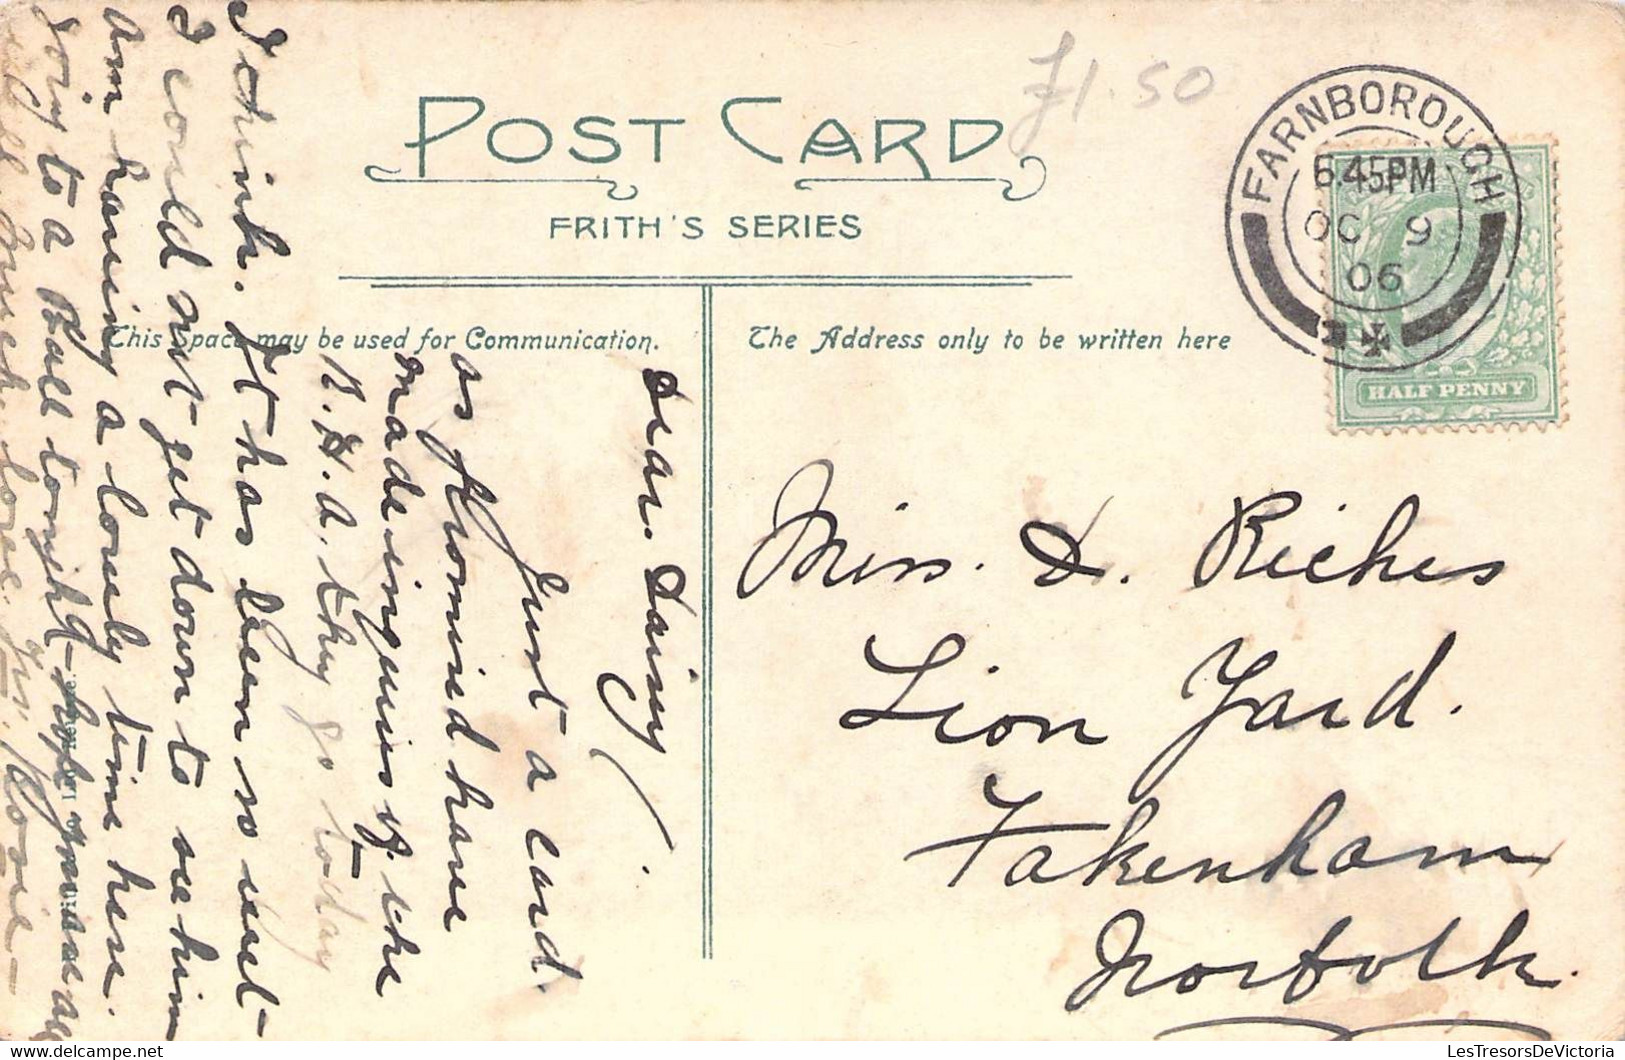 £1.50
POST CARD
FRITH'S SERIES
FARNBOROUGH
6.45PM
OC 9
06
HALF PENNY
This Space may be used for Communication.
The Address only to be written here
Miss. D. Riches
Lion Yard.
Fakenham
Norfolk.
Dear. Daisy
Just a card.
as promised have
made inquiries of. the
R.H.A. they go today
I think. It has been so wet
I could not get down to see him
am having a lovely time here.
going to a Ball tonight hope you are all
well much love. yrs. Rosie
LesTresorsDeVictoria